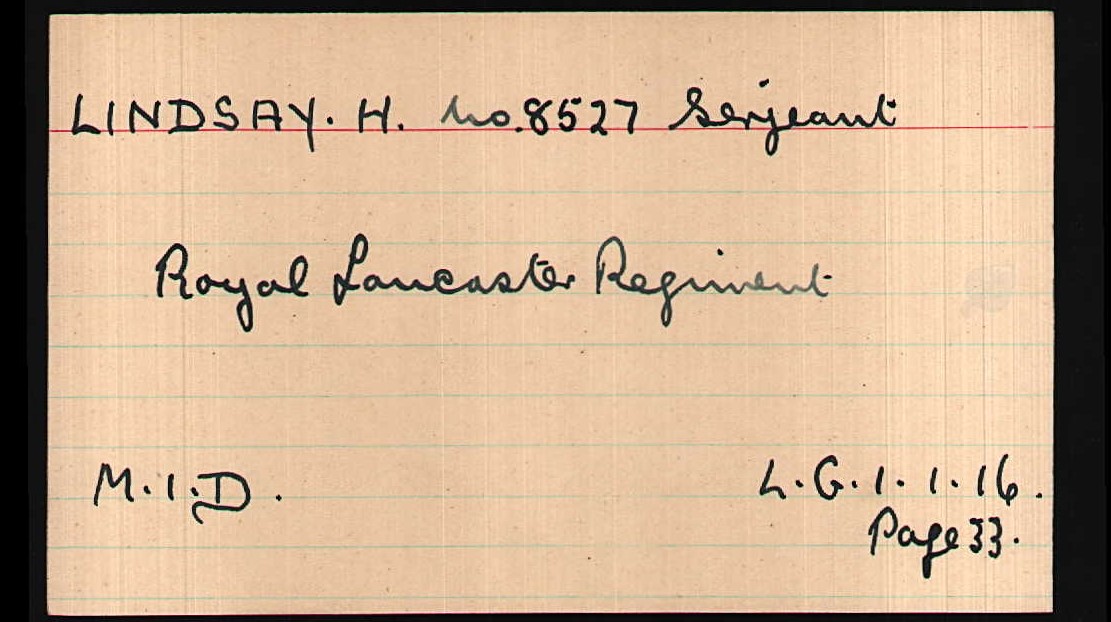 LINDSAY. H. No. 8527 Serjeant
Royal Lancaster Regiment
M.I.D. L.G. 1.1.16.
Page 33.